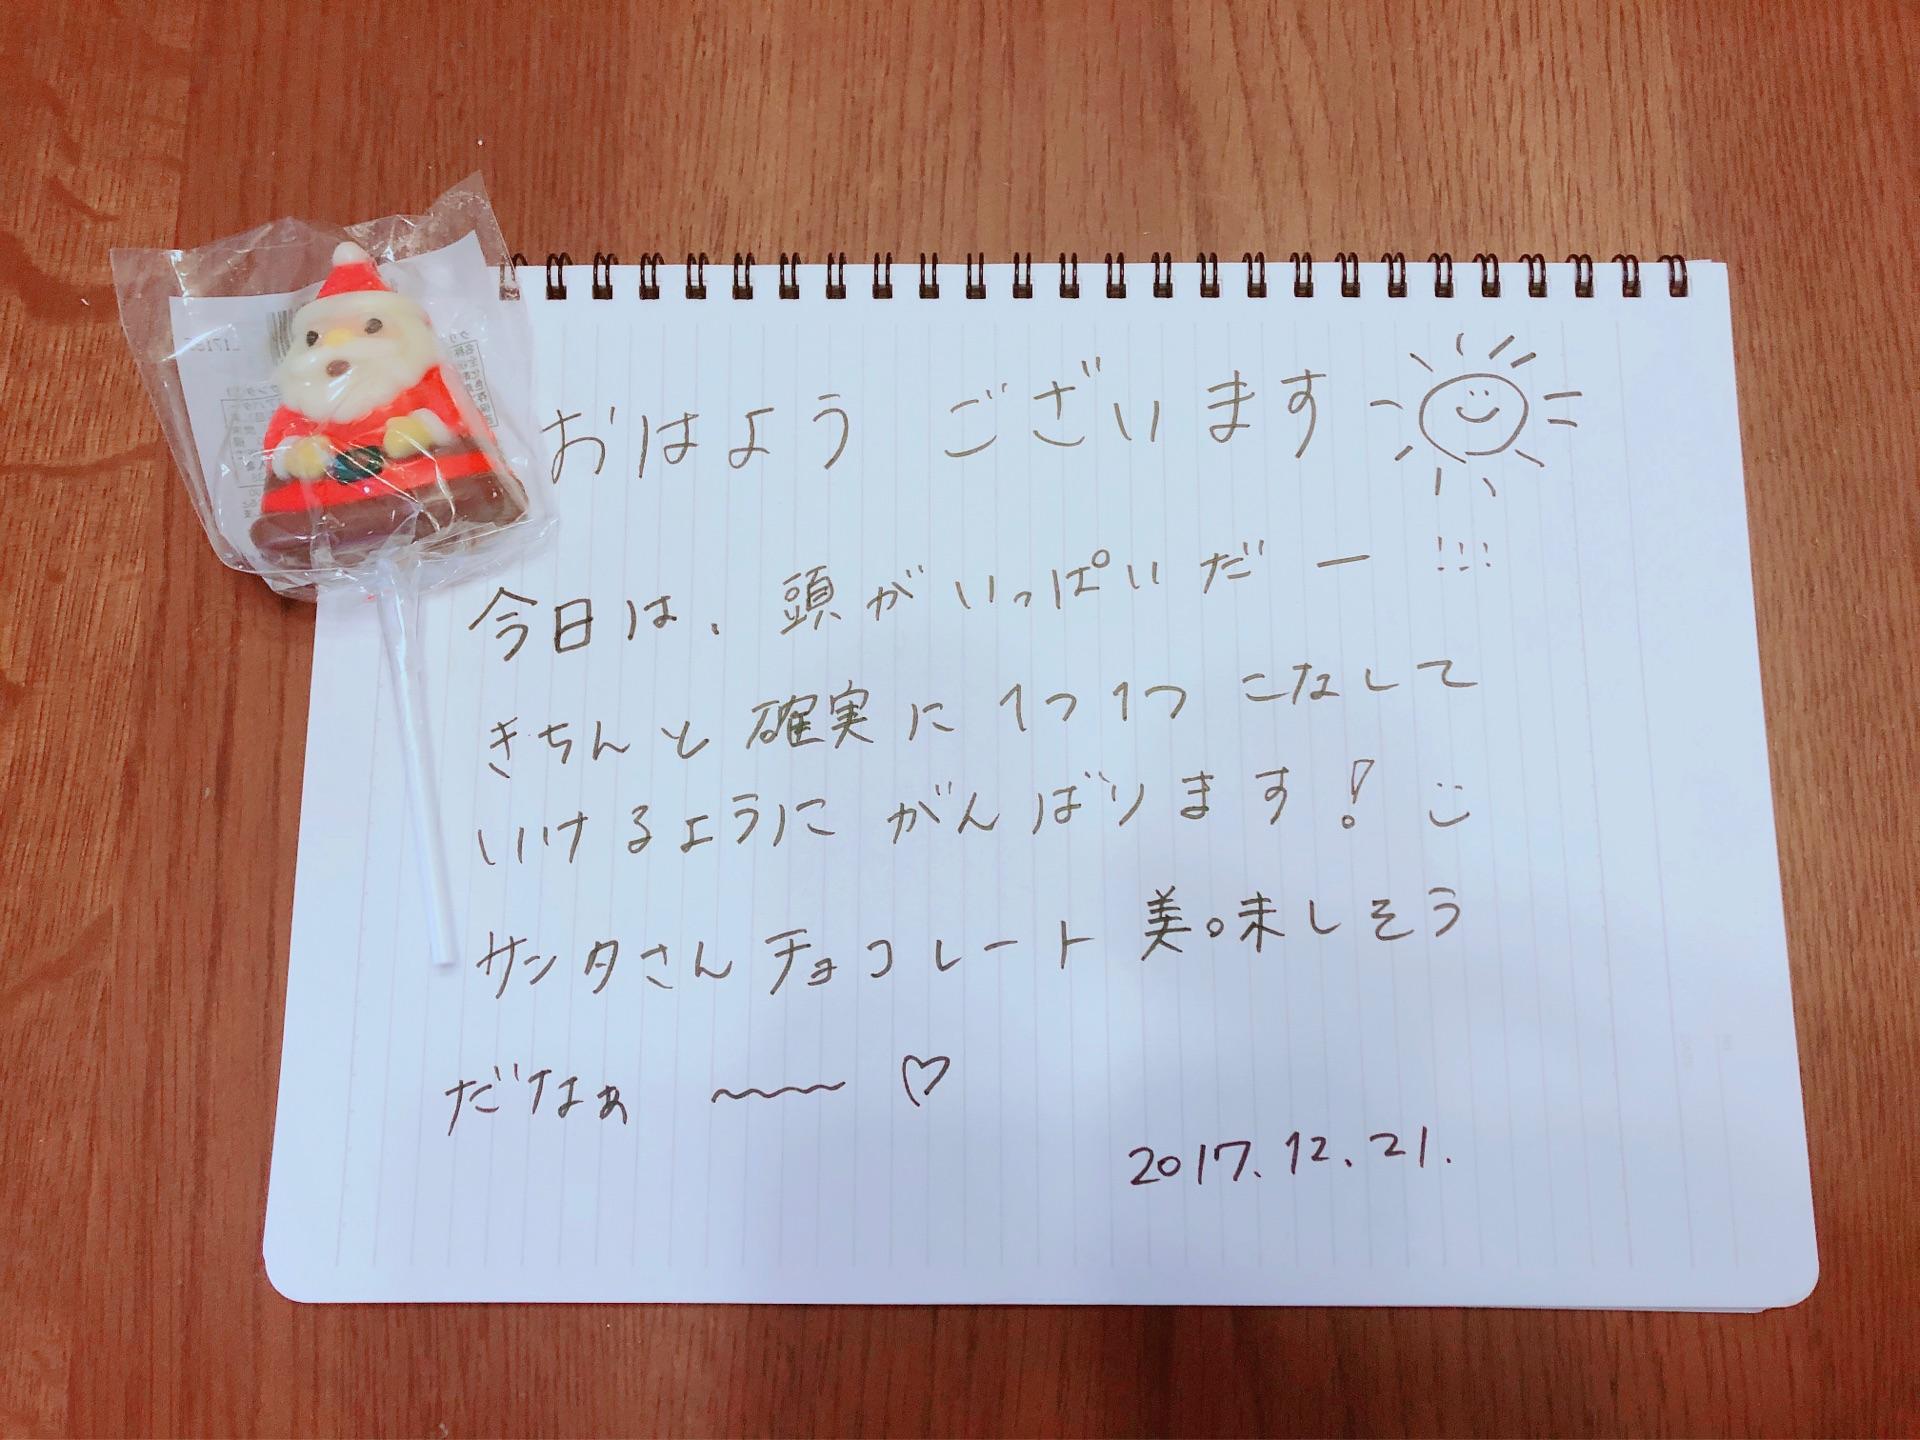 おはよう ございます
今日は、頭がいっぱいだー !!!
きちんと確実に1つ1つこなして
いけるようにがんばります!
サンタさんチョコレート美味しそう
だなぁ 〜〜 ♡
2017.12.21.